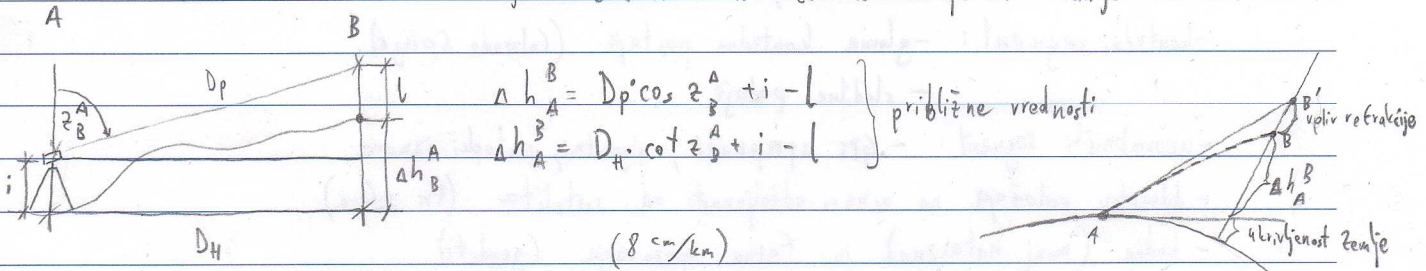 A
B
D_P
z_B^A
l
i
Δh_B^A
D_H
Δ h_A^B = D_P · cos z_B^A + i - l
Δ h_A^B = D_H · cot z_B^A + i - l
približne vrednosti
(8 cm/km)
B'
vpliv refrakcije
B
Δh_A^B
A
ukrivljenost zemlje